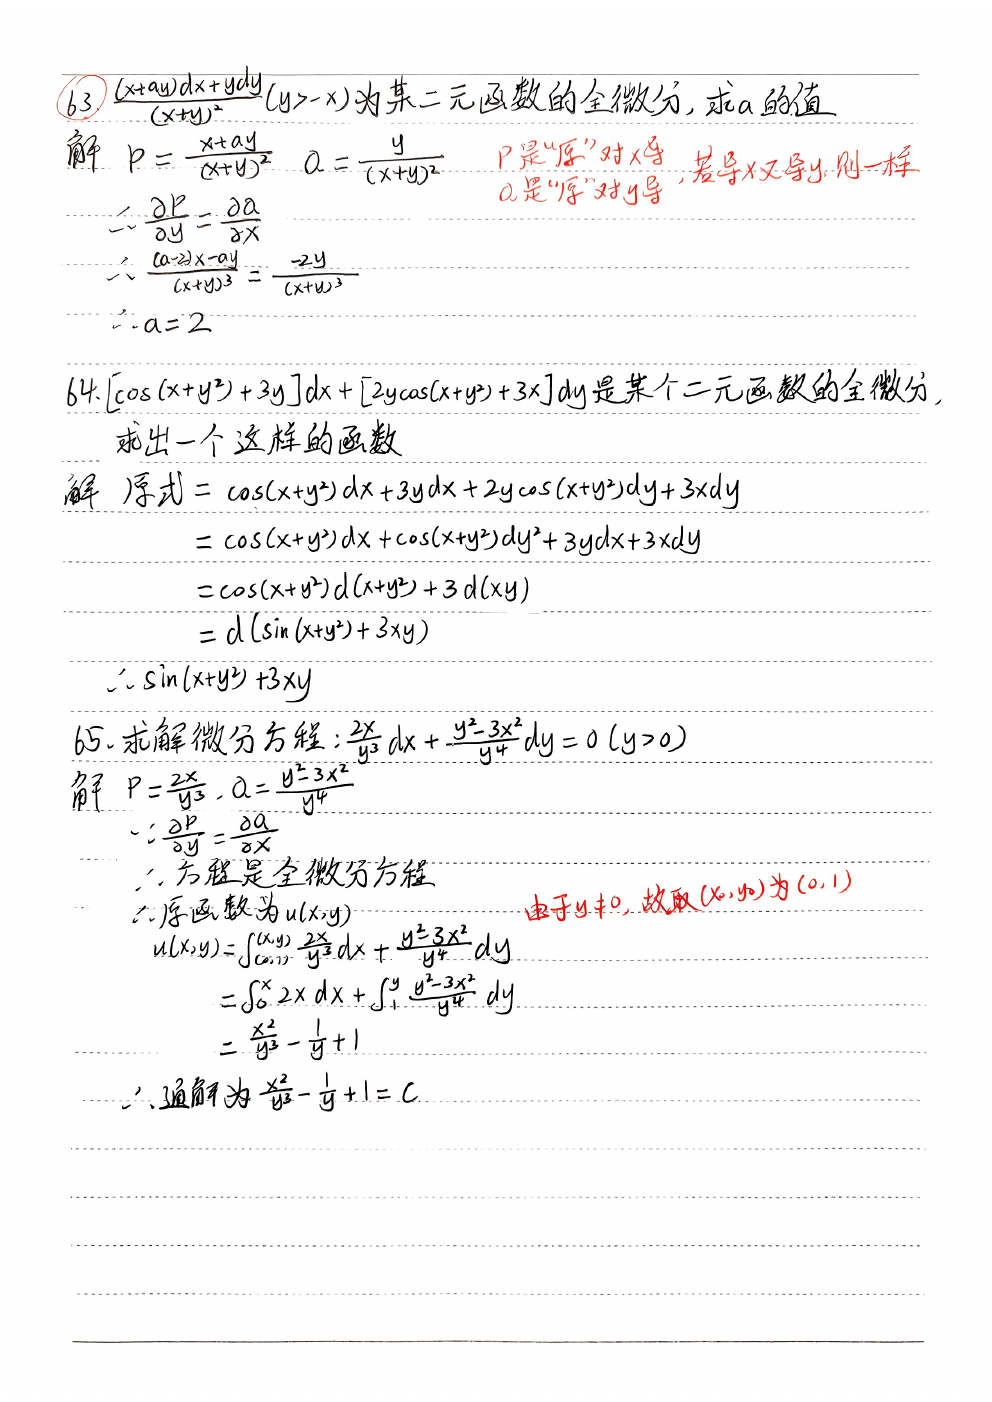 63. \frac{(x+ay)dx+ydy}{(x+y)^2} (y>-x)为某二元函数的全微分,求a的值
解 P = \frac{x+ay}{(x+y)^2} Q = \frac{y}{(x+y)^2}
P是“原”对x导
Q是“原”对y导
,若导x又导y,则一样
∴ \frac{∂P}{∂y} = \frac{∂Q}{∂x}
∴ \frac{(a-2)x-ay}{(x+y)^3} = \frac{-2y}{(x+y)^3}
∴ a=2
64. [cos(x+y²)+3y]dx+[2ycos(x+y²)+3x]dy是某个二元函数的全微分,
求出一个这样的函数
解 原式 = cos(x+y²)dx+3ydx+2ycos(x+y²)dy+3xdy
= cos(x+y²)dx+cos(x+y²)dy²+3ydx+3xdy
= cos(x+y²)d(x+y²)+3d(xy)
= d(sin(x+y²)+3xy)
∴ sin(x+y²)+3xy
65. 求解微分方程: \frac{2x}{y^3}dx+\frac{y²-3x²}{y^4}dy=0 (y>0)
解 P=\frac{2x}{y^3}, Q=\frac{y²-3x²}{y^4}
∵ \frac{∂P}{∂y} = \frac{∂Q}{∂x}
∴ 方程是全微分方程
∴ 原函数为u(x,y)
由于y≠0,故取(x₀,y₀)为(0,1)
u(x,y)=∫_{(0,1)}^{(x,y)} \frac{2x}{y^3}dx+\frac{y²-3x²}{y^4}dy
=∫_0^x 2xdx+∫_1^y \frac{y²-3x²}{y^4}dy
= \frac{x²}{y³}-\frac{1}{y}+1
∴ 通解为 \frac{x²}{y³}-\frac{1}{y}+1=C